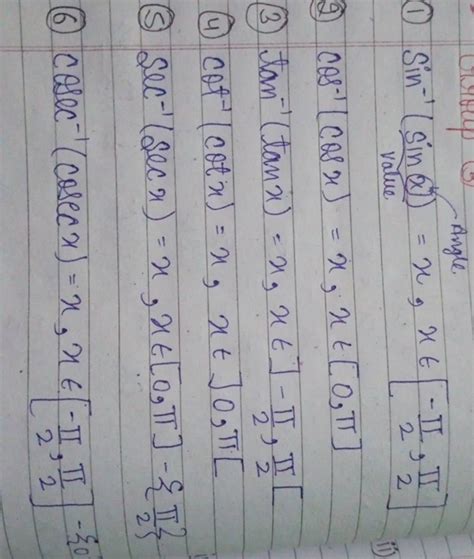 Group ③
① Sin⁻¹ (sin x) = x, x ∈ [-π/2, π/2]
value
Angle
② cos⁻¹ (cos x) = x, x ∈ [0, π]
③ tan⁻¹ (tan x) = x, x ∈ ]-π/2, π/2[
④ cot⁻¹ (cot x) = x, x ∈ ]0, π[
⑤ Sec⁻¹ (sec x) = x, x ∈ [0, π] - {π/2}
⑥ cosec⁻¹ (cosec x) = x, x ∈ [-π/2, π/2] - {0